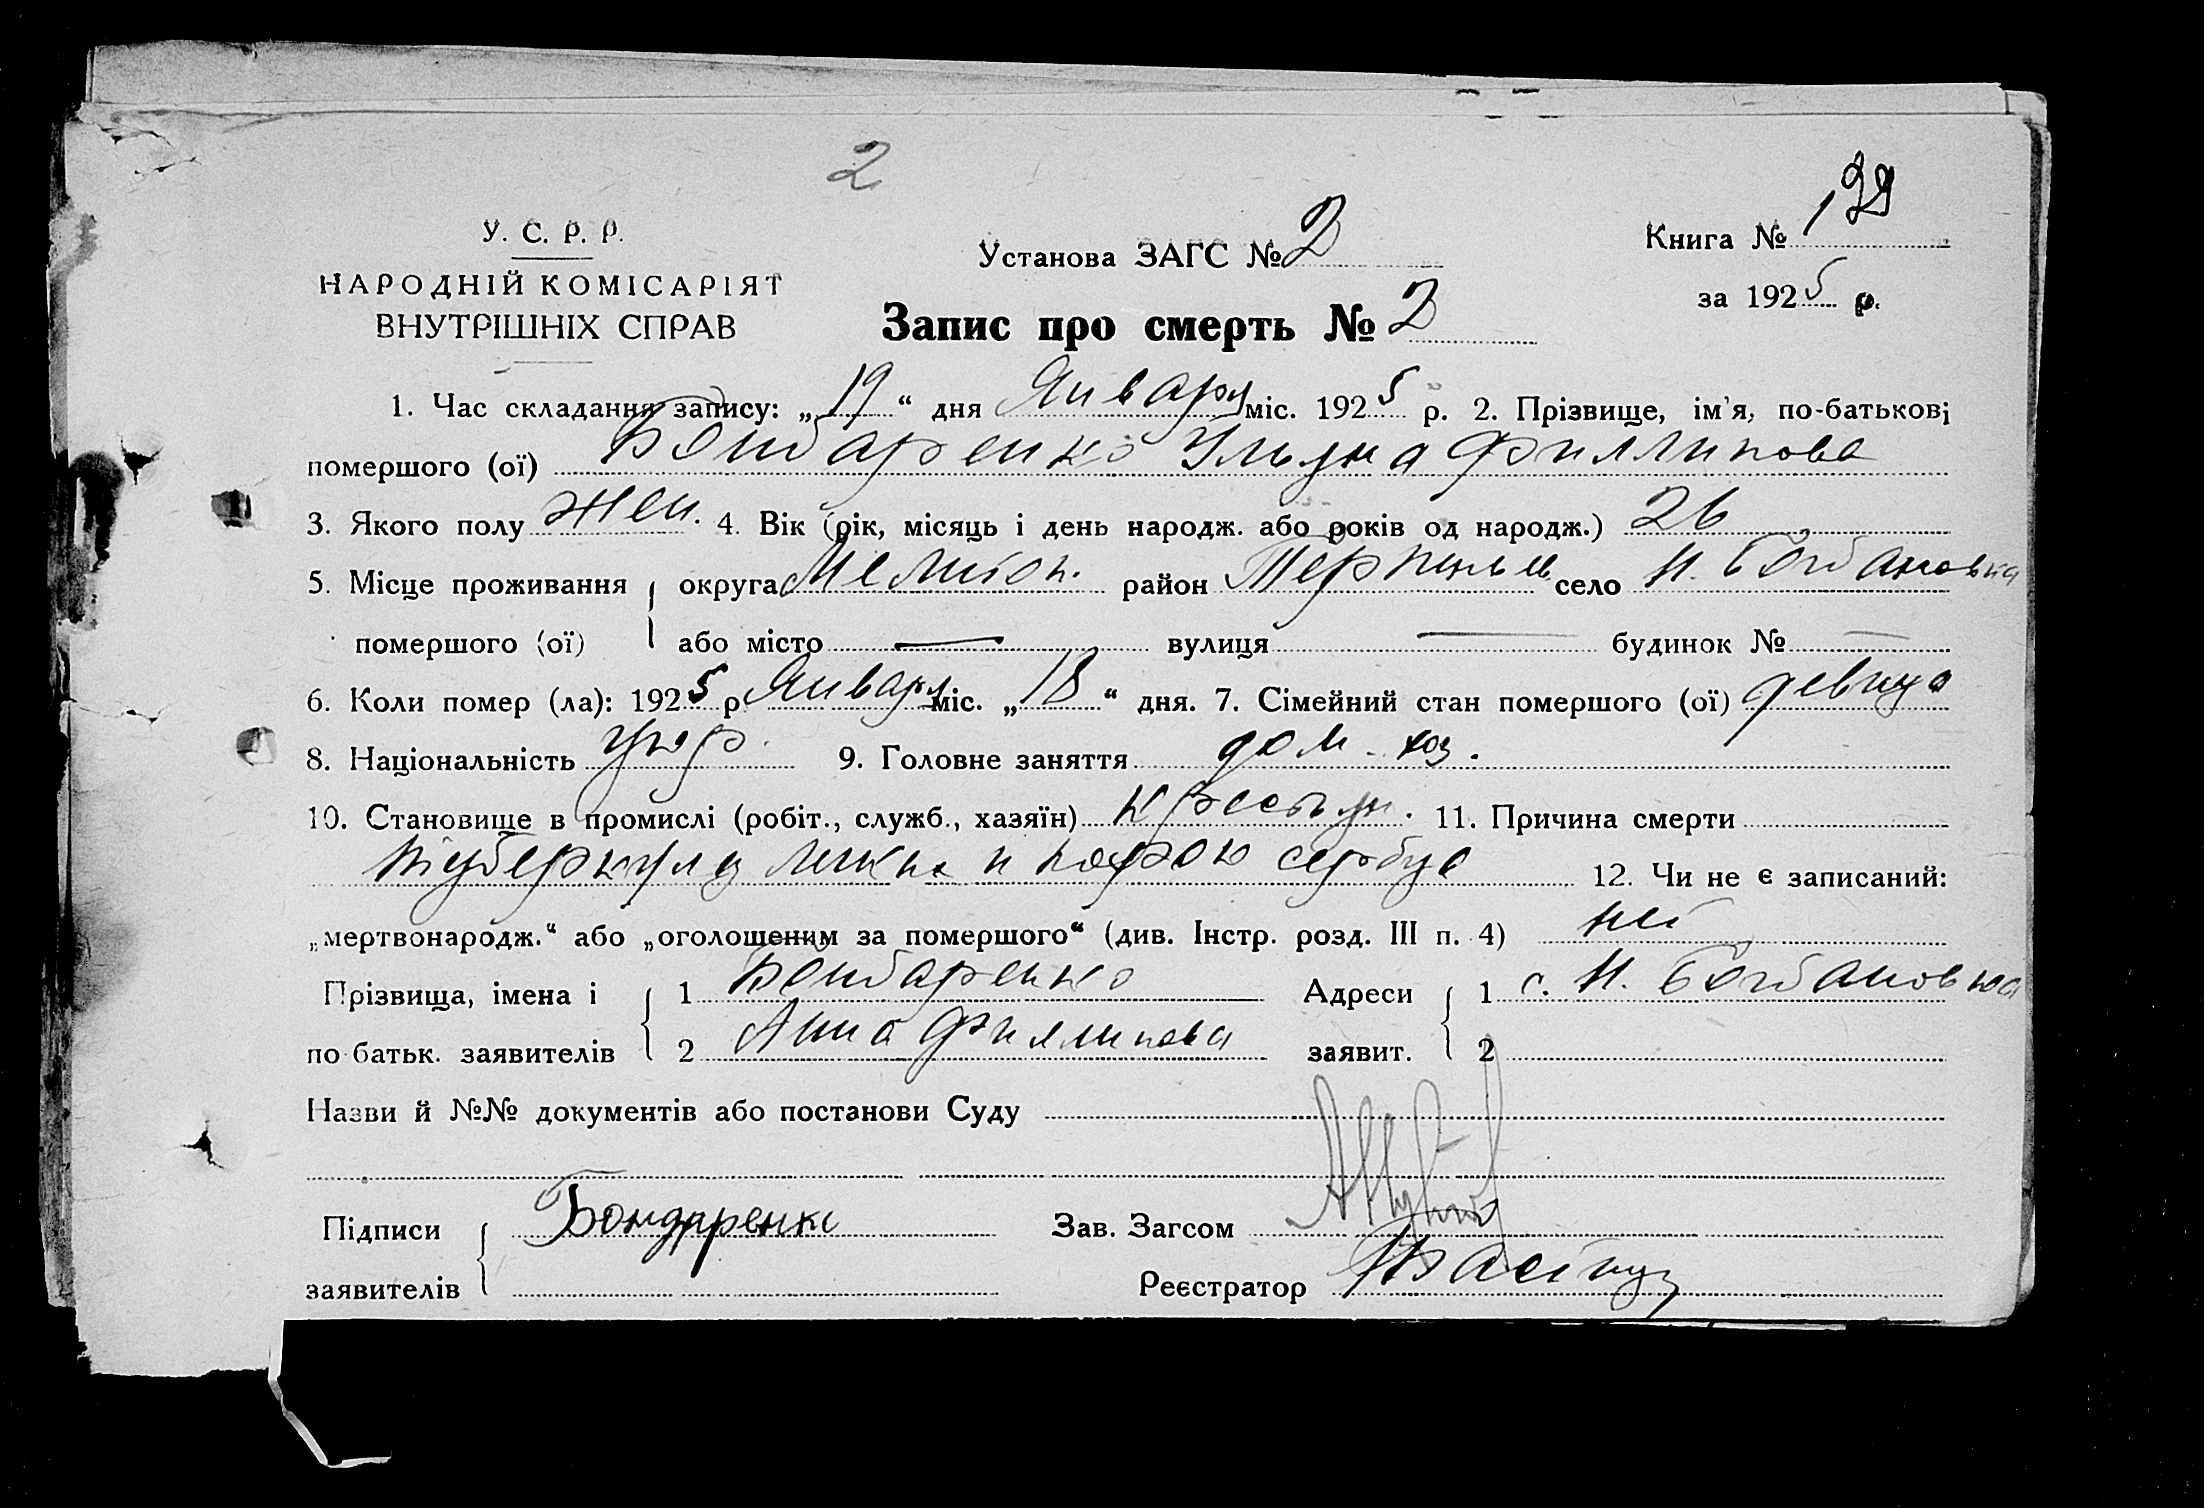 2
У. С. Р. Р.
НАРОДНІЙ КОМІСАРІЯТ
ВНУТРІШНІХ СПРАВ
Установа ЗАГС № 2
Книга №
за 1925 р.
Запис про смерть № 2
1. Час складання запису: „19“ дня Января міс. 1925 р. 2. Прізвище, ім'я, по-батькові
помершого (ої) Бондаренко Ульяна Филлипова
3. Якого полу жен. 4. Вік (рік, місяць і день народж. або років од народж.) 26
5. Місце проживання округа Мелитоп. район Терпеньев. село Н. Богдановка
помершого (ої) або місто — вулиця — будинок № —
6. Коли помер (ла): 1925 р. Января міс. „18“ дня. 7. Сімейний стан помершого (ої) девица
8. Національність укр. 9. Головне заняття дом. хоз.
10. Становище в промислі (робіт., служб., хазяїн) крестьян. 11. Причина смерти
туберкулез легких и порок сердца 12. Чи не є записаний:
„мертвонародж.“ або „оголошеним за помершого“ (див. Інстр. розд. III п. 4) нет
Прізвища, імена і 1 Бондаренко Адреси 1 с. Н. Богдановка
по батьк. заявителів 2 Анна Филлипова заявит. 2
Назви й №№ документів або постанови Суду
Підписи Бондаренко Зав. Загсом
заявителів Реєстратор